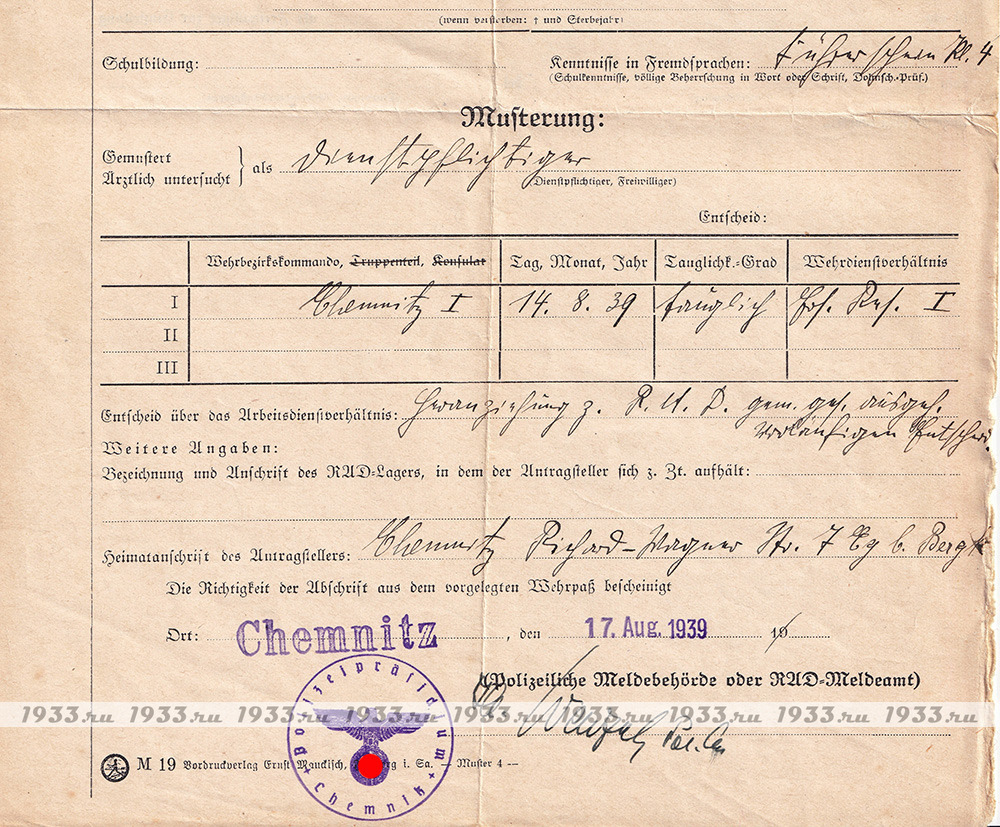 (wenn verstorben: † und Sterbejahr)
Schulbildung: Kenntnisse in Fremdsprachen: Führerschein Kl. 4
(Schulkenntnisse, völlige Beherrschung in Wort oder Schrift, Dolmsch.-Prüf.)
Musterung:
Gemustert
Ärztlich untersucht } als Dienstpflichtiger
(Dienstpflichtiger, Freiwilliger)
Entscheid:
Wehrbezirkskommando, Truppenteil, Konsulat Tag, Monat, Jahr Tauglichk.-Grad Wehrdienstverhältnis
I Chemnitz I 14. 8. 39 tauglich Ers. Res. I
II
III
Entscheid über das Arbeitsdienstverhältnis: Heranziehung z. R. A. D. gem. ges. ausges.
vorläufigen Entscheid
Weitere Angaben:
Bezeichnung und Anschrift des RAD-Lagers, in dem der Antragsteller sich z. Zt. aufhält:
Heimatanschrift des Antragstellers: Chemnitz Richard-Wagner Str. 7 Eg b. Bergt
Die Richtigkeit der Abschrift aus dem vorgelegten Wehrpaß bescheinigt
Ort: Chemnitz , den 17. Aug. 1939 19
(Polizeiliche Meldebehörde oder RAD-Meldeamt)
1933.ru 1933.ru 1933.ru 1933.ru 1933.ru 1933.ru 1933.ru 1933.ru 1933.ru
Polizeipräsidium
Chemnitz
M 19 Vordruckverlag Ernst Mauckisch, i. Sa. — Muster 4 —